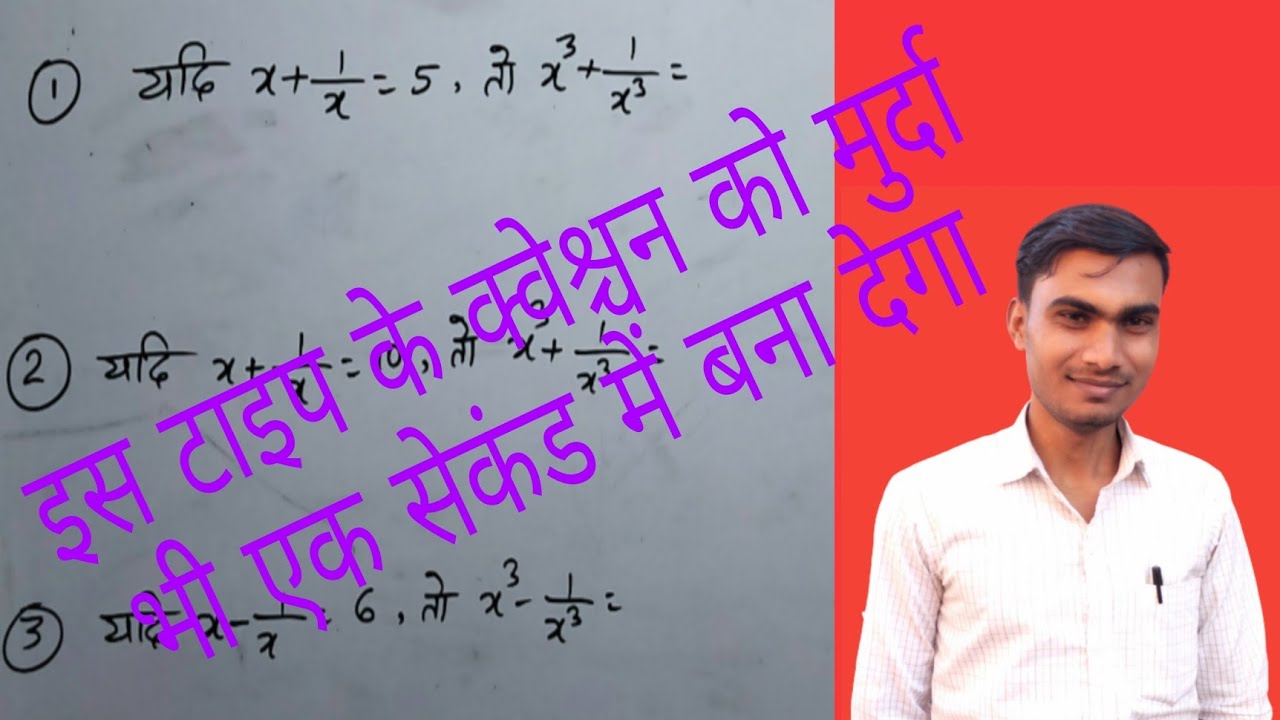 ① यदि x+1/x=5, तो x³+1/x³=
② यदि x+1/x=10, तो x³+1/x³=
③ यदि x-1/x=6, तो x³-1/x³=
इस टाइप के क्वेश्चन को मुर्दा
भी एक सेकंड में बना देगा